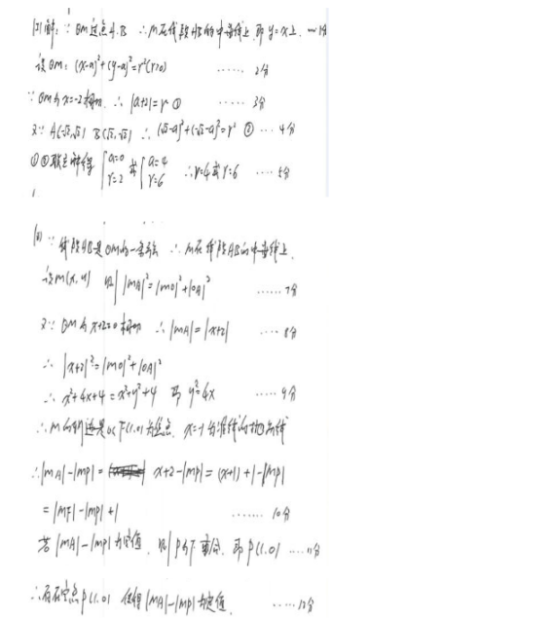 解:∵ ⊙M过点A.B ∴M在线段AB的中垂线上,即y=x上. …1分
设⊙M:(x-a)²+(y-a)²=r²(r>0) …… 2分
∵⊙M与x=-2相切. ∴ |a+2|=r ① …… 3分
又∵ A(-√2,√2) B(√2,-√2) ∴ (√2-a)²+(-√2-a)²=r² ② … 4分
①②联立解得 {a=0 r=2 或 {a=4 r=6 ∴r=4或r=6 …… 5分
∵ 线段AB是⊙M的一条弦 ∴ M在线段AB的中垂线上.
设M(x,y) 则|MA|²=|MO|²+|OA|² …… 7分
又∵ ⊙M与x+2=0相切 ∴ |MA|=|x+2| …… 8分
∴ |x+2|²=|MO|²+|OA|²
∴ x²+4x+4=x²+y²+4 即 y²=4x …… 9分
∴M的轨迹是以F(1,0)为焦点. x=-1为准线的抛物线
∴|MA|-|MP|= x+2-|MP|=(x+1)+1-|MP|
=|MF|-|MP|+1 …… 10分
若|MA|-|MP|为定值,则P与F重合,即P(1,0) …… 11分
∴存在定点P(1,0) 使得|MA|-|MP|为定值. …… 12分